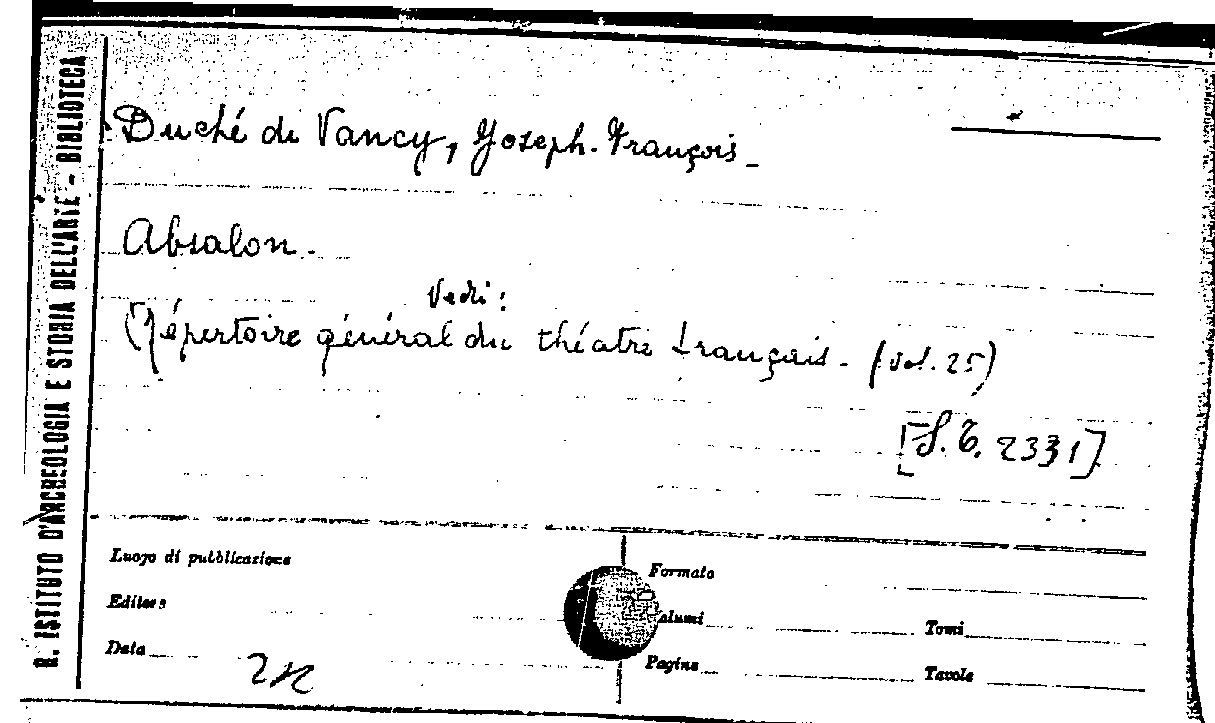 R. ISTITUTO D'ARCHEOLOGIA E STORIA DELL'ARTE - BIBLIOTECA
Duché de Vancy, Joseph-François -
Absalon -
Vedi:
Répertoire général du théatre français - (vol. 25)
[S. T. 2331]
Luogo di pubblicazione
Editore
Data
Formato
Volumi
Tomi
Pagine
Tavole